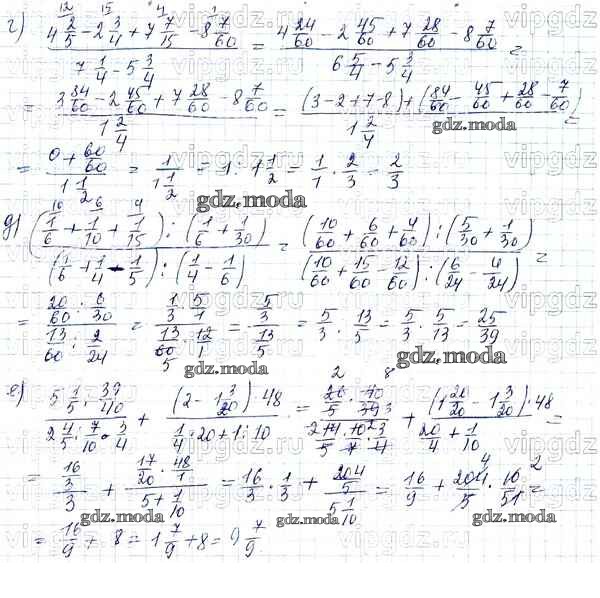 г) (4 2/5 - 2 3/4 + 7 7/15 - 8 7/60) / (7 1/4 - 5 3/4) = (4 24/60 - 2 45/60 + 7 28/60 - 8 7/60) / (6 5/4 - 5 3/4) =
= (3 84/60 - 2 45/60 + 7 28/60 - 8 7/60) / (1 2/4) = ((3-2+7-8) + (84/60 - 45/60 + 28/60 - 7/60)) / (1 2/4) =
= (0 + 60/60) / (1 1/2) = 1 / (1 1/2) = 1 : 1 1/2 = 1/1 · 2/3 = 2/3
д) ((1/6 + 1/10 + 1/15) : (1/6 + 1/30)) / ((1/6 + 1/4 - 1/5) : (1/4 - 1/6)) = ((10/60 + 6/60 + 4/60) : (5/30 + 1/30)) / ((10/60 + 15/60 - 12/60) : (6/24 - 4/24)) =
= (20/60 : 6/30) / (13/60 : 2/24) = (1/3 · 5/1) / (13/60 · 12/1) = (5/3) / (13/5) = 5/3 : 13/5 = 5/3 · 5/13 = 25/39
е) (5 1/5 : 39/40) / (2 4/5 : 7/10 · 3/4) + ((2 - 1 3/20) · 48) / (1/4 · 20 + 1 : 10) = (26/5 · 40/39) / (14 · 10 · 3 / 5 · 7 · 4) + ((1 20/20 - 1 3/20) · 48) / (20/4 + 1/10) =
= (16/3) / 3 + (17/20 · 48/1) / (5 + 1/10) = 16/3 · 1/3 + (204/5) / (5 1/10) = 16/9 + 204/5 · 10/51 =
= 16/9 + 8 = 1 7/9 + 8 = 9 7/9.
gdz.moda
vipgdz.ru